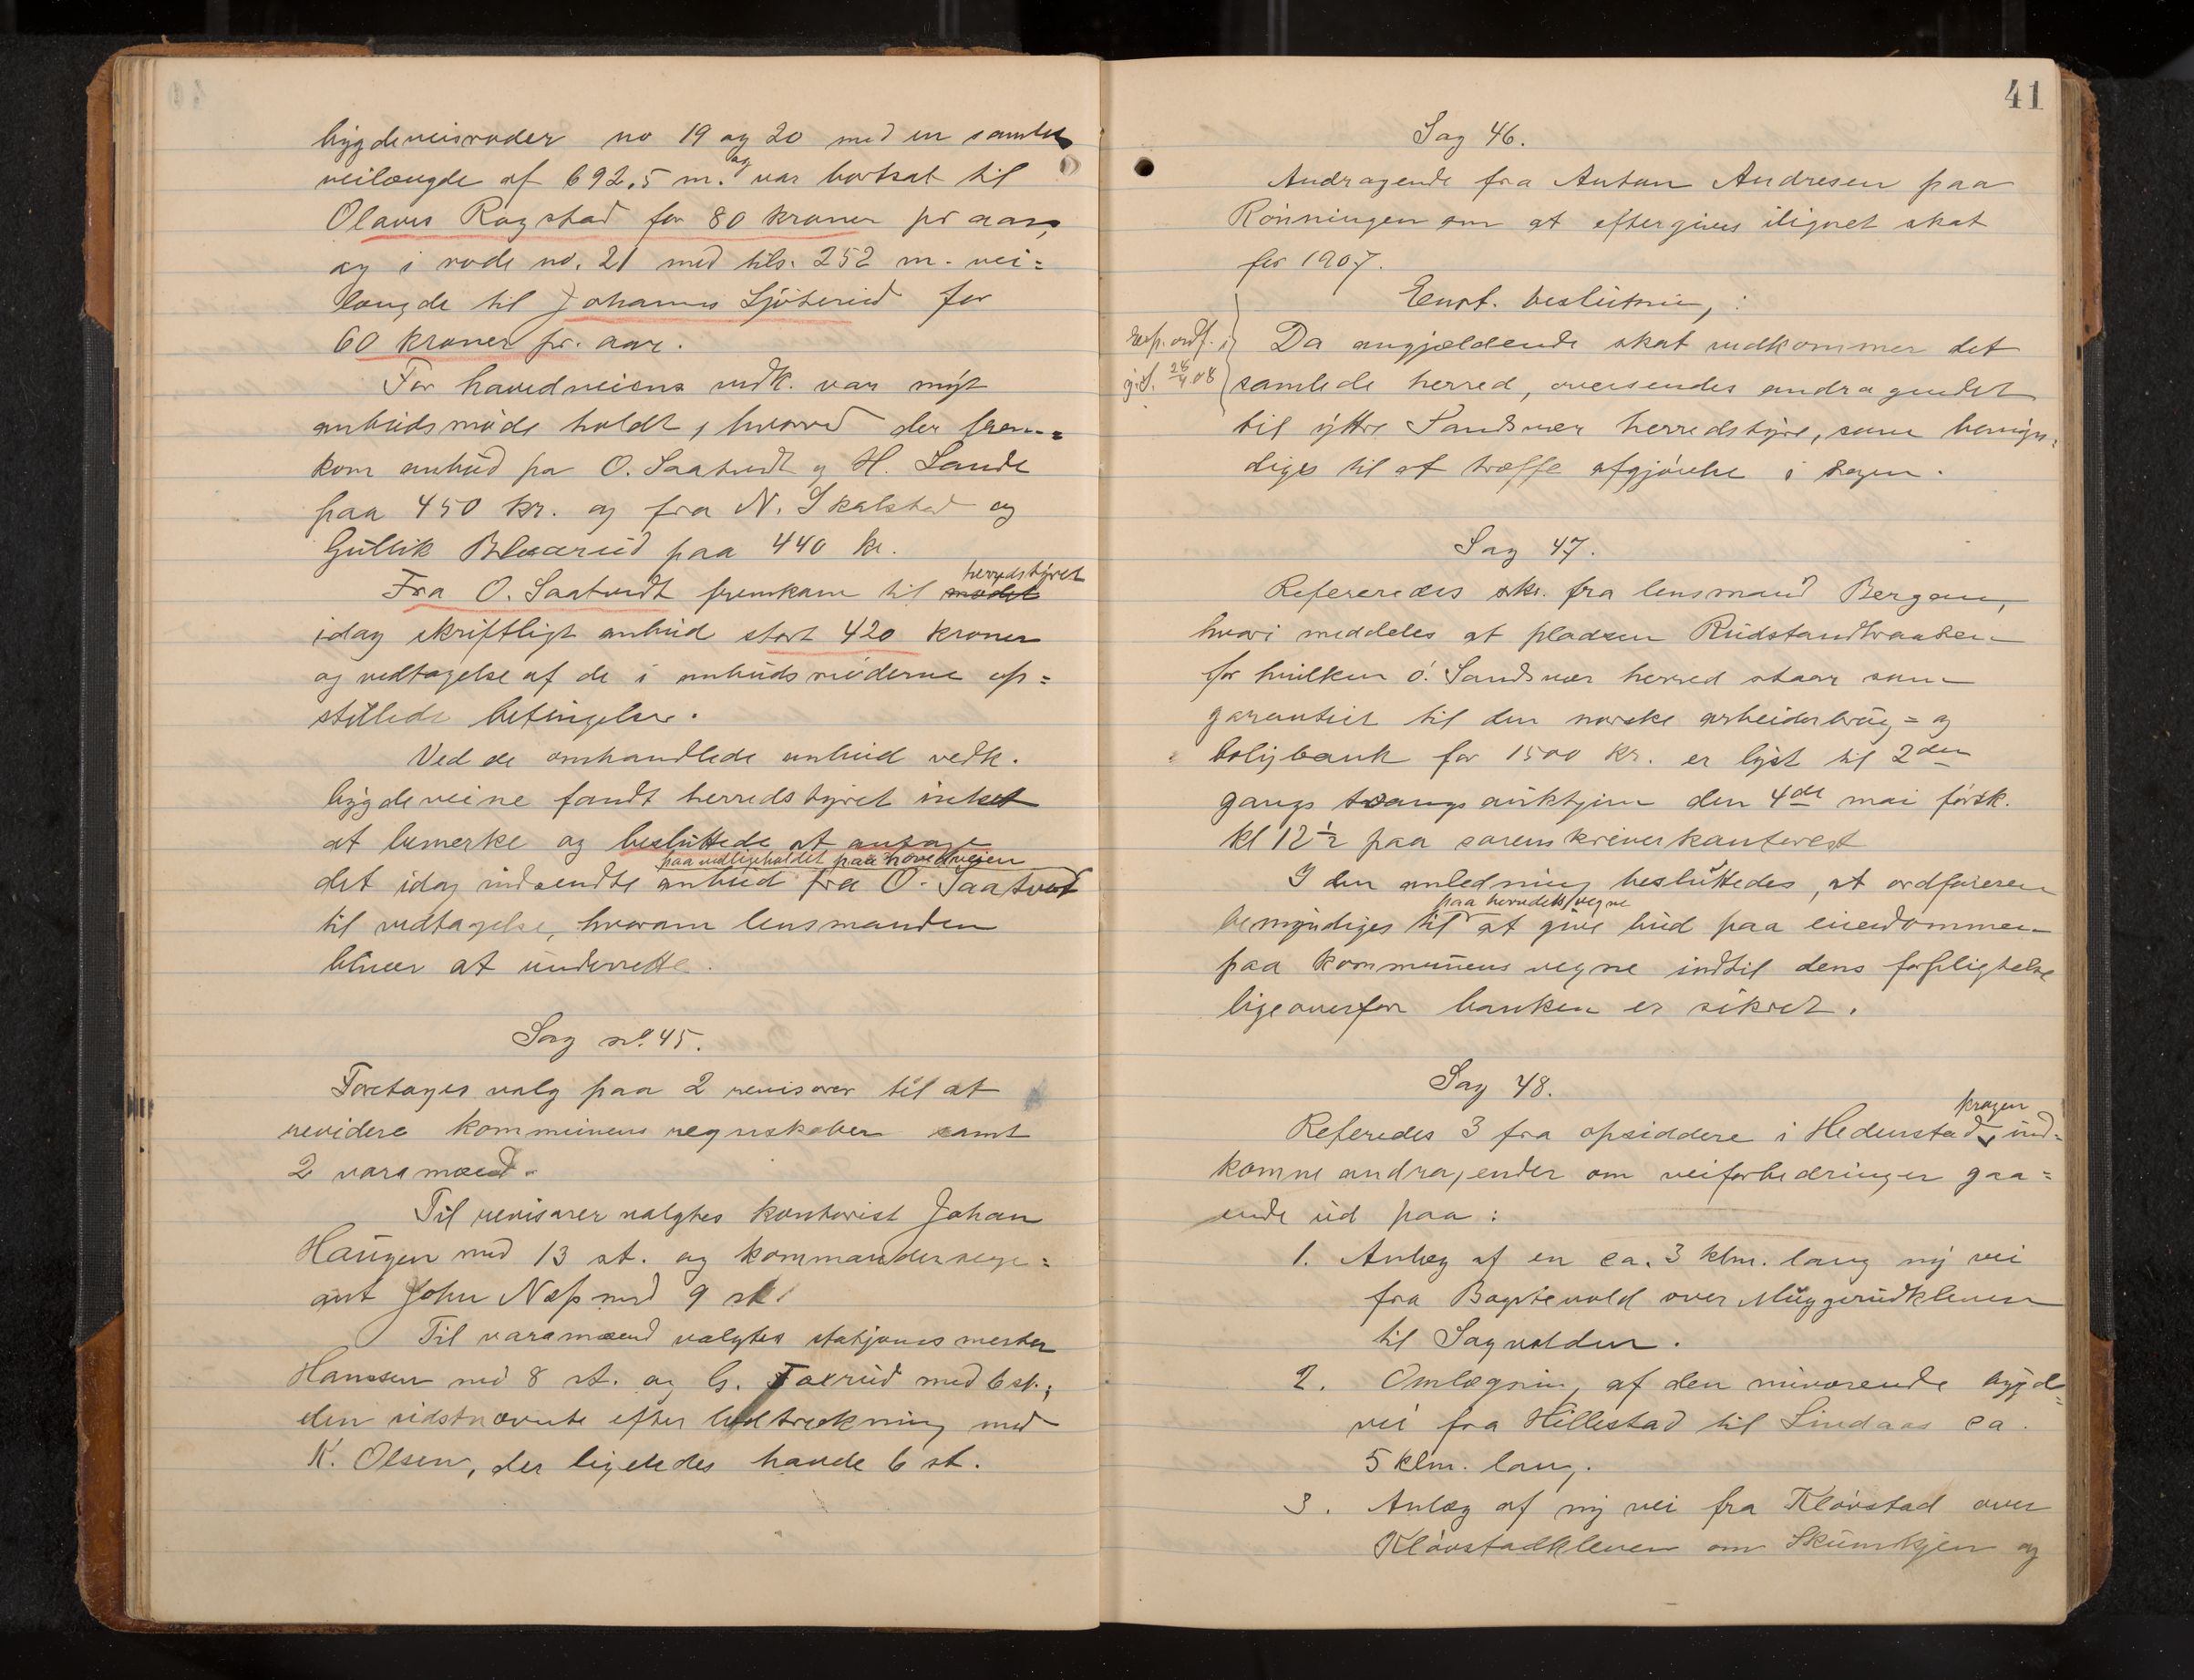 bygdeveisroder no 19 og 20 med en samlet
veilængde af 692,5 m. og var bortsat til
Olaves Rogstad for 80 kroner pr aar,
og i rode no. 21 med tils. 252 m. vei=
længde til Johannes Sjöterud for
60 kroner pr. aar.
For hovedveiens vedk. var nyt
anbudsmøde holdt, hvorved der frem=
kom anbud fra O. Saatvedt og H. Lande
paa 450 kr. og fra N. Skalstad og
Gullik Blaarud paa 440 kr.
herredstyret
Fra O. Saatvedt fremkom til mødet
idag skriftligt anbud stort 420 kroner
og vedtagelse af de i anbudsmøderne op=
stillede betingelser.
Ved de omhandlede anbud vedk.
bygdeveine fandt herredstyret intet
at bemerke og besluttede at antage
paa vedligeholdet paa hovedveien
det idag indsendte anbud fra O. Saatvedt
til vedtagelse, hvorom lensmanden
bliver at underrette.
Sag no. 45.
Foretages valg paa 2 revisorer til at
revidere kommunens regnskaber samt
2 varamænd.
Til revisorer valgtes kontorist Johan
Haugen med 13 st. og kommanderserge=
ant John Næss med 9 st.
Til varamænd valgtes stationsmester
Hanssen med 8 st. og G. Foerud med 6 st.,
den sidstnævnte efter lodtrekning med
K. Olsen, der ligeledes havde 6 st.
41
Sag 46.
Andragende fra Anton Andresen paa
Rønningen om at eftergives ilignet skat
for 1907.
Enst. beslutning:
Exp. ordf. i
y.S. 28/4 08
Da angjældende skat vedkommer det
samlede herred, oversendes andragendet
til ytre Sandsvær herredstyre, som bemyn=
diges til at træffe afgjørelse i sagen.
Sag 47.
Refereredes skr. fra lensmand Bergan,
hvori meddeles at pladsen Rudstandbraaten
for hvilken ö. Sandsvær herred staar som
garantist til den norske arbeiderbrug= og
boligbank for 1500 kr. er lyst til 2den
gangs tvangsauktjon den 4de mai førstk.
kl 12½ paa sorenskriverkontoret
I den anledning besluttedes, at ordføreren
paa herredets vegne
bemyndiges til at give bud paa eiendommen
paa kommunens vegne indtil dens forpligtelse
ligeoverfor banken er sikret.
Sag 48.
kragen
Referedes 3 fra opsiddere i Hedenstad ind=
komne andragender om veiforbedringer gaa=
ende ud paa:
1. Anlæg af en ca. 3 klm. lang ny vei
fra Bagstevold over Muggerudkleven
til Sagvolden.
2. Omlægning af den nuværende bygde=
vei fra Hillestad til Lindaas ca.
5 klm. lang.
3. Anlæg af ny vei fra Kløvstad over
Kløvstadkleven om Skumkjen og